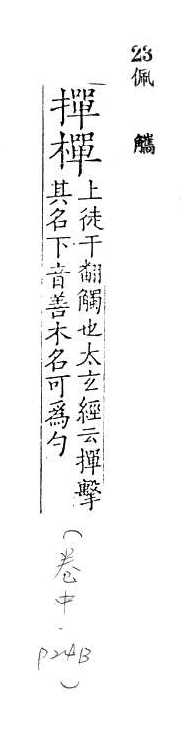 23佩觿
撣樿
上徒干翻觸也太玄經云撣擊
其名下音善木名可為勺
(卷中.P24B)